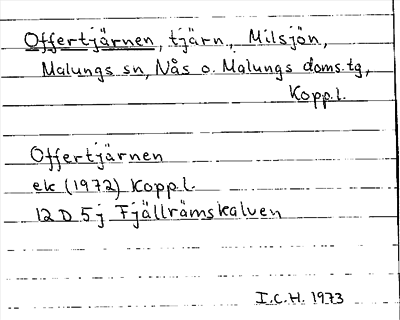 Offertjärnen, tjärn, Milsjön,
Malungs sn, Nås o. Malungs doms.tg,
Koppl.
Offertjärnen
ek (1972) Koppl.
12 D 5j Fjällrämskalven
I.C.H. 1973